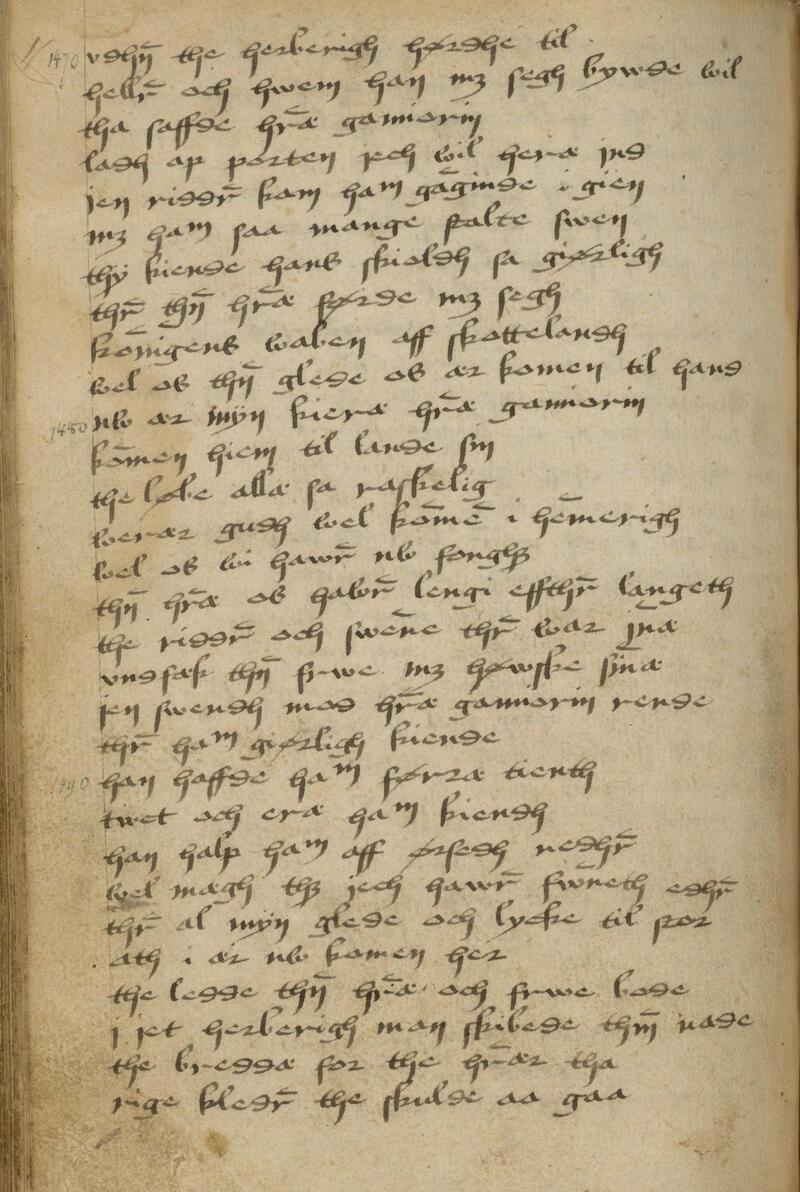 1470 vdhn̄ the herberigh hørdhe til
hellr̄ och hwem han mz segh bywde wil
tha saffde hr̄æ gamiorin
ladh ap porten jech wil heræ ind
jen riddr̄ kam hām gāginde i gien
mz hām saa mange stalte swen
thy kiende hans skioldh sa giørligh
thr̄ thn̄ hr̄æ førde mz segh
kōnigens waben aff skottelandh
wel os thn̄ glede os ær komen til hand
1480 nw ær myn kieræ hr̄æ gamiorin
kōmen hiem til lande sin
the løbe allæ sa raskelig
werær gudh wel kōmē i hēmerigh
wel os wi hawr̄ nw fonghꝫ
thn̄ hr̄æ os hawr̄ lengi effthr̄ langeth
the riddr̄ och swēne thr̄ war jn̄æ
vndfæk thn̄ frwe mz høwske sin̄æ
jen swendh mod hr̄æ gamiorin rende
thr̄ hām giørligh kiende
1490 han haffde hām førræ tienth
twet och eræ hām kiendh
han halp hām aff ørsedh nedhr̄
wel magh thꝫ jech hawr̄ swr̄neth edhr̄
thr̄ al myn glede och lycke til stor
ath i ær nw komen her
the ledde thn̄ hr̄æ och frwe bode
j jet herberigh man skibede thm̄ nade
the breddæ for the hr̄ær tha
rige kledr̄ the skulde aa gaa